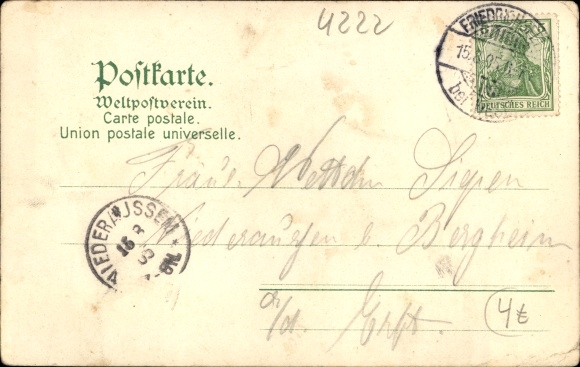 4222
Postkarte.
Weltpostverein.
Carte postale.
Union postale universelle.
DEUTSCHES REICH
Frau
Niederaussen b. Bergheim
a/d. Erft.
NIEDERAUSSEM
4€